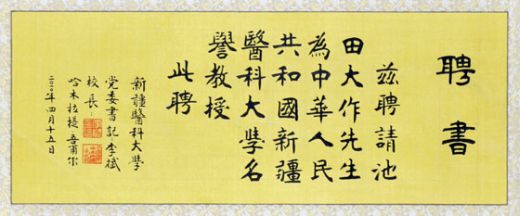 聘書
茲聘請池
田大作先生
為中華人民
共和國新疆
醫科大學名
譽教授
此聘
新疆醫科大學
党委書記李斌
校長：
哈木拉提 吾甫尔
二〇〇〇年四月十五日